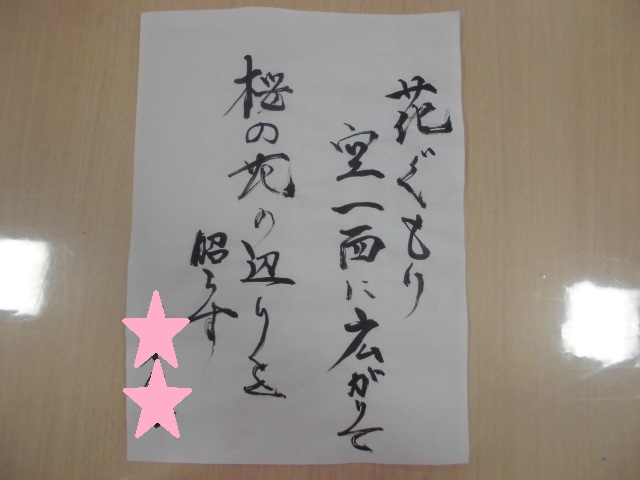 花ぐもり
空一面に広がりて
桜の花の辺りを
昭らす